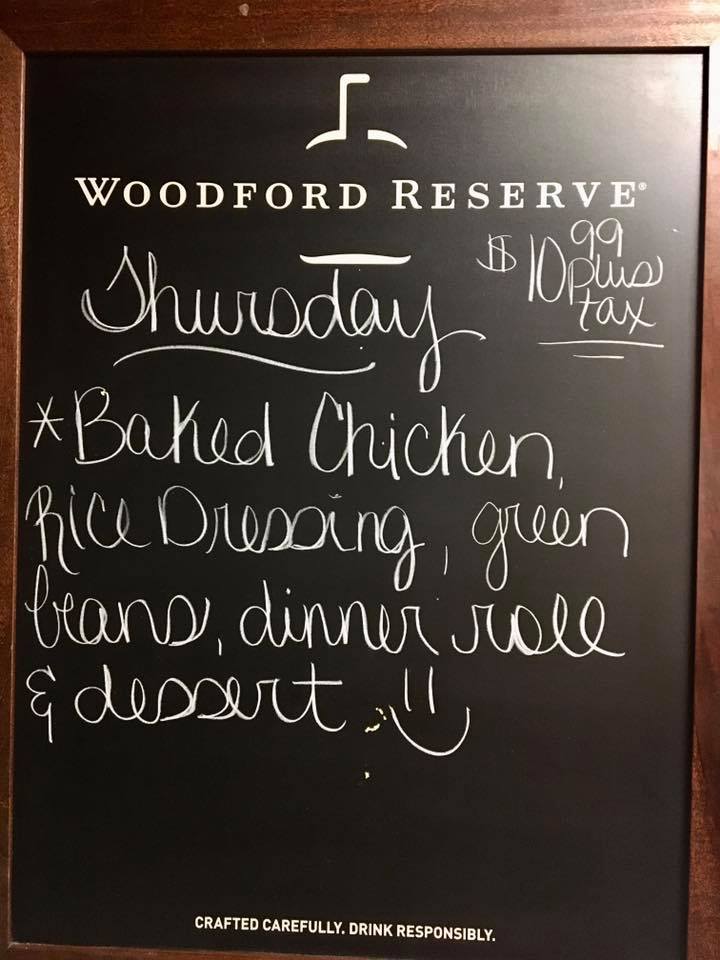 WOODFORD RESERVE®
$10 99 plus tax
Thursday
*Baked Chicken,
Rice Dressing, green
beans, dinner roll
& dessert
CRAFTED CAREFULLY. DRINK RESPONSIBLY.